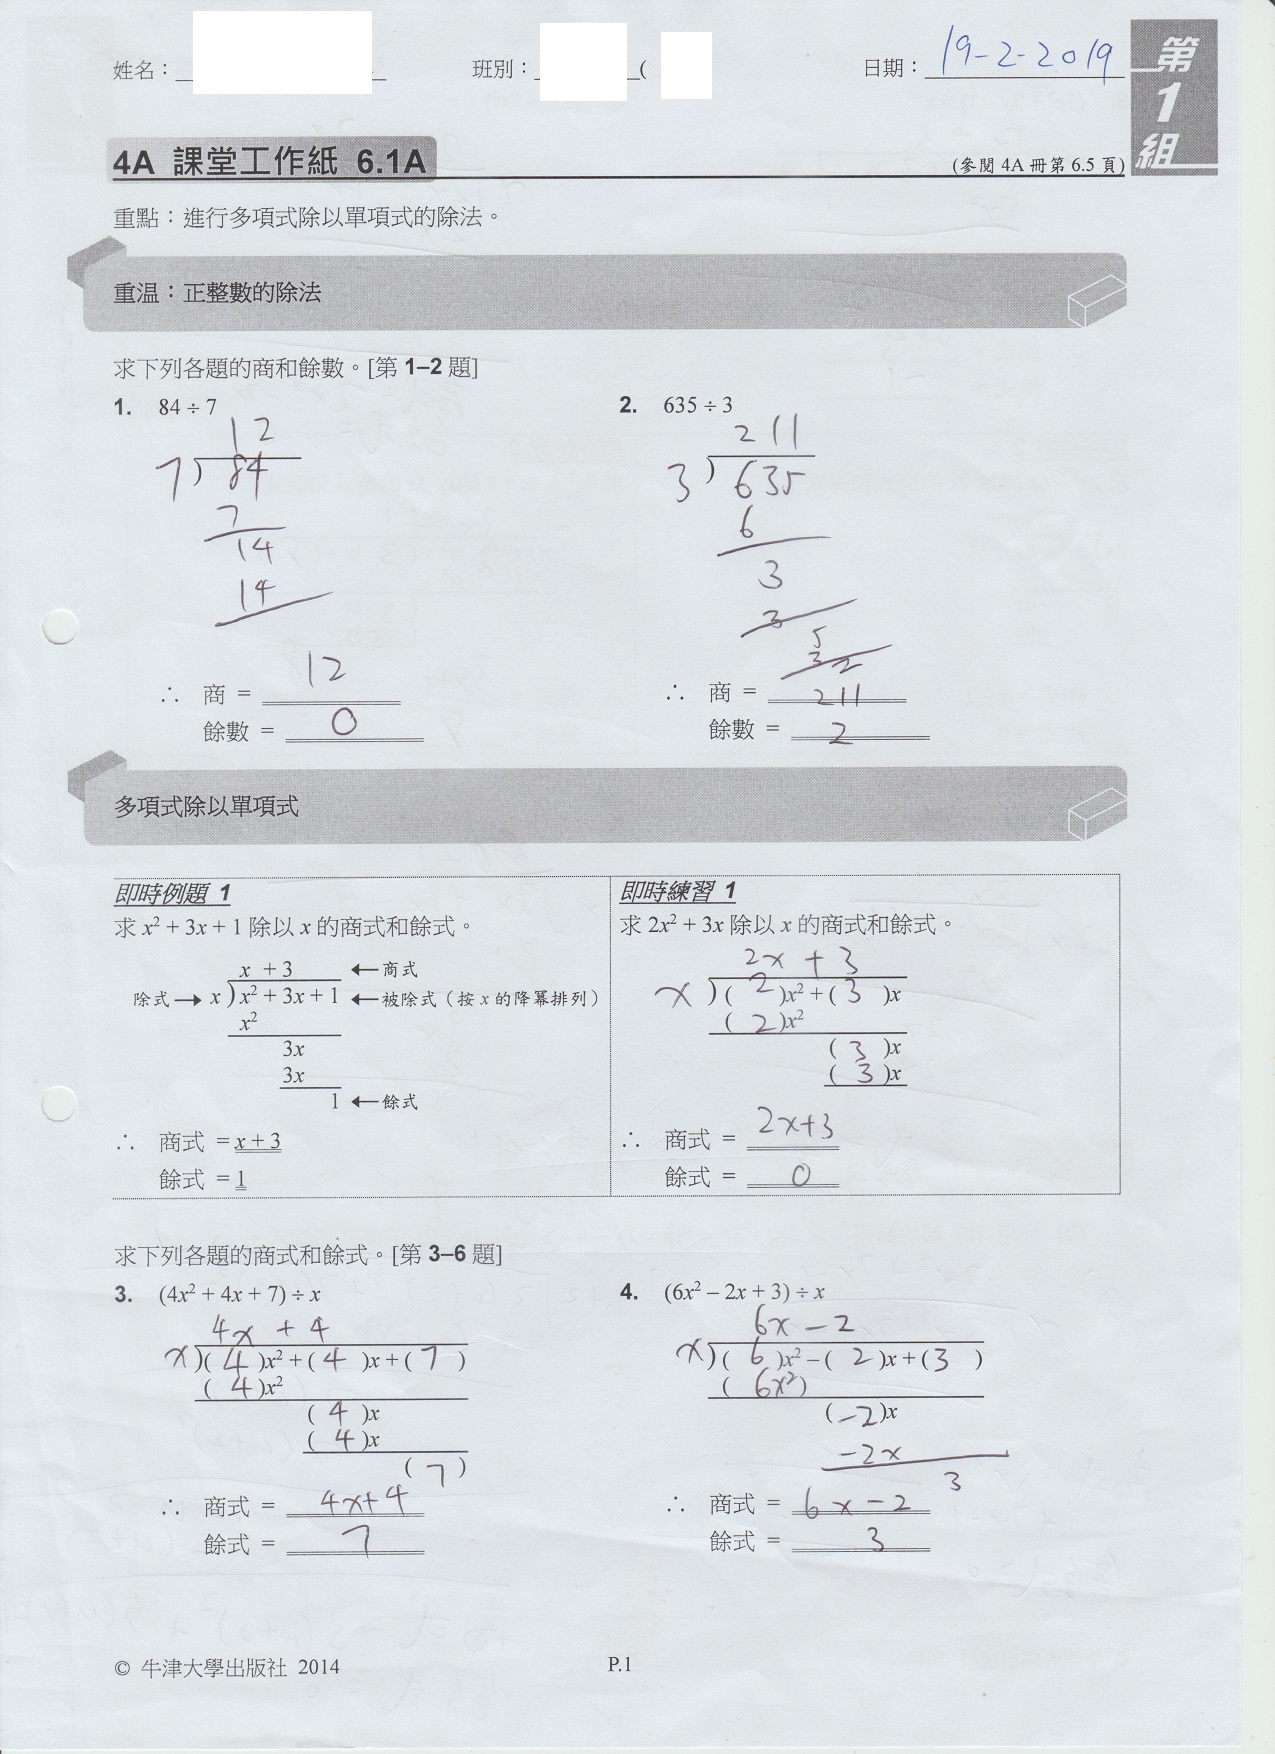 姓名： 班別： ( 日期： 19-2-2019
第
1
組
4A 課堂工作紙 6.1A
(參閱 4A 冊第 6.5 頁)
重點：進行多項式除以單項式的除法。
重温：正整數的除法
求下列各題的商和餘數。[第 1–2 題]
1. 84 ÷ 7
12
7 ) 84
7
14
14
∴ 商 = 12
餘數 = 0
2. 635 ÷ 3
211
3 ) 635
6
3
3
5
3 2
∴ 商 = 211
餘數 = 2
多項式除以單項式
即時例題 1
求 x² + 3x + 1 除以 x 的商式和餘式。
x + 3 ← 商式
除式 → x ) x² + 3x + 1 ← 被除式（按 x 的降冪排列）
x²
3x
3x
1 ← 餘式
∴ 商式 = x + 3
餘式 = 1
即時練習 1
求 2x² + 3x 除以 x 的商式和餘式。
2x + 3
x ) ( 2 )x² + ( 3 )x
( 2 )x²
( 3 )x
( 3 )x
∴ 商式 = 2x+3
餘式 = 0
求下列各題的商式和餘式。[第 3–6 題]
3. (4x² + 4x + 7) ÷ x
4x + 4
x ) ( 4 )x² + ( 4 )x + ( 7 )
( 4 )x²
( 4 )x
( 4 )x
( 7 )
∴ 商式 = 4x+4
餘式 = 7
4. (6x² – 2x + 3) ÷ x
6x – 2
x ) ( 6 )x² – ( 2 )x + ( 3 )
( 6x² )
( –2 )x
–2x
3
∴ 商式 = 6x – 2
餘式 = 3
© 牛津大學出版社 2014
P.1